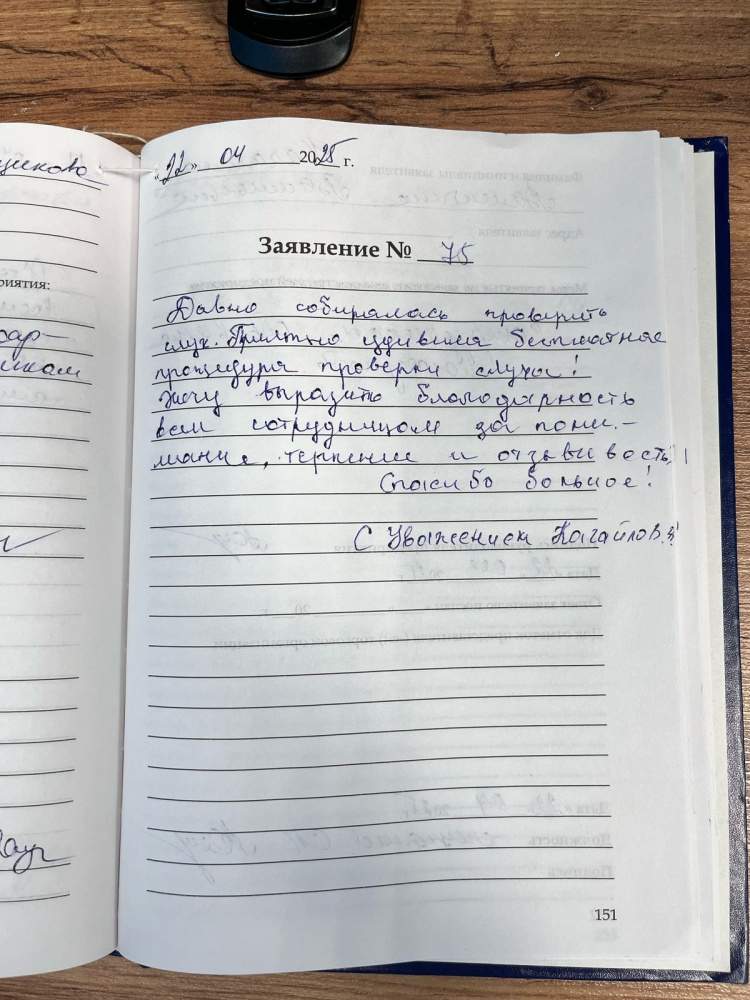 «22» 04 2025 г.
Заявление № 75
Давно собиралась проверить
слух. Приятно удивила бесплатная
процедура проверки слуха!
Хочу выразить благодарность
всем сотрудникам за пони-
мание, терпение и отзывивость!
Спасибо большое!
С Уважением
151
риятия: